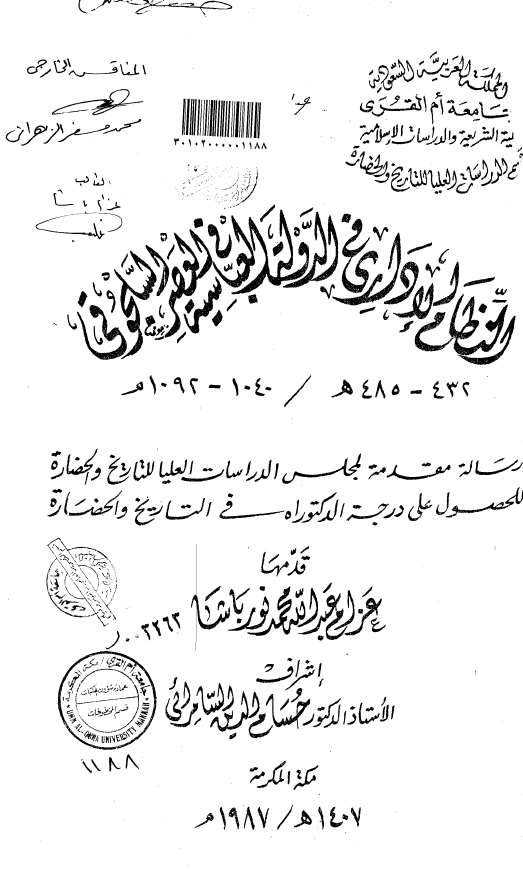 المملكة العربية السعودية
جامعة أم القرى
كلية الشريعة والدراسات الإسلامية
قسم الدراسات العليا للتاريخ والحضارة
المناقش الخارجي
محمد مسفر الزهراني
٣٠١٠٢٠٠٠٠٠١١٨٨
النظام الإداري في الدولة العباسية في العصر السلجوقي
٤٣٢ - ٤٨٥ هـ / ١٠٤٠ - ١٠٩٢ م
رسالة مقدمة لمجلس الدراسات العليا للتاريخ والحضارة
للحصول على درجة الدكتوراه في التاريخ والحضارة
قدمها
عزام عبدالله محمد نور باشا
٠٠٣٢٦٣
إشراف
الأستاذ الدكتور حسام الدين السامرائي
جامعة أم القرى / مكة المكرمة
عمادة شؤون المكتبات
قسم المخطوطات
UMM AL-QURA UNIVERSITY MAKKAH
١١٨٨
مكة المكرمة
١٤٠٧ هـ / ١٩٨٧ م